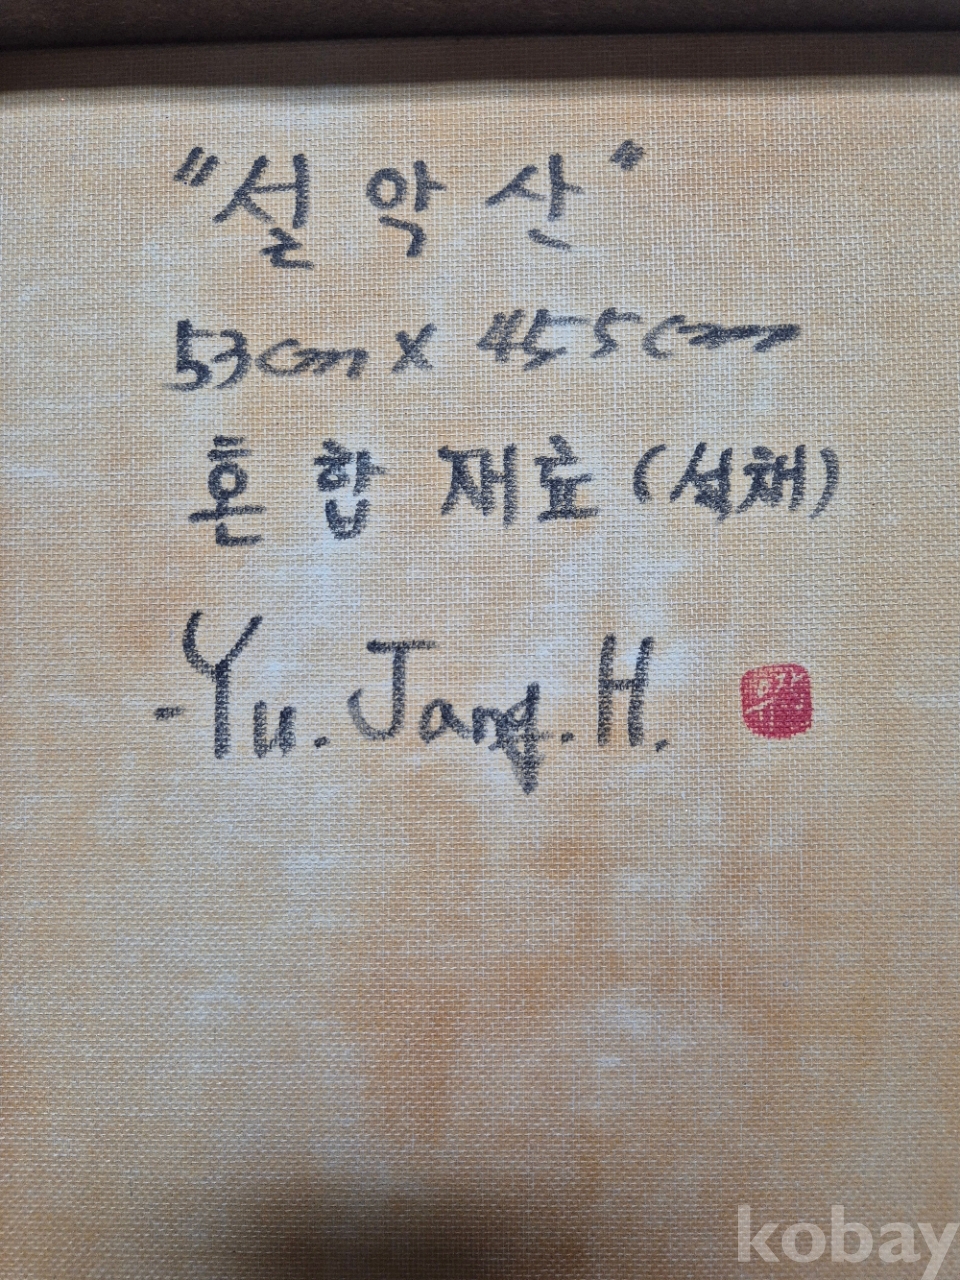 "설악산"
53cm x 45.5cm
혼합재료 (석채)
-Yu. Jang. H.
kobay